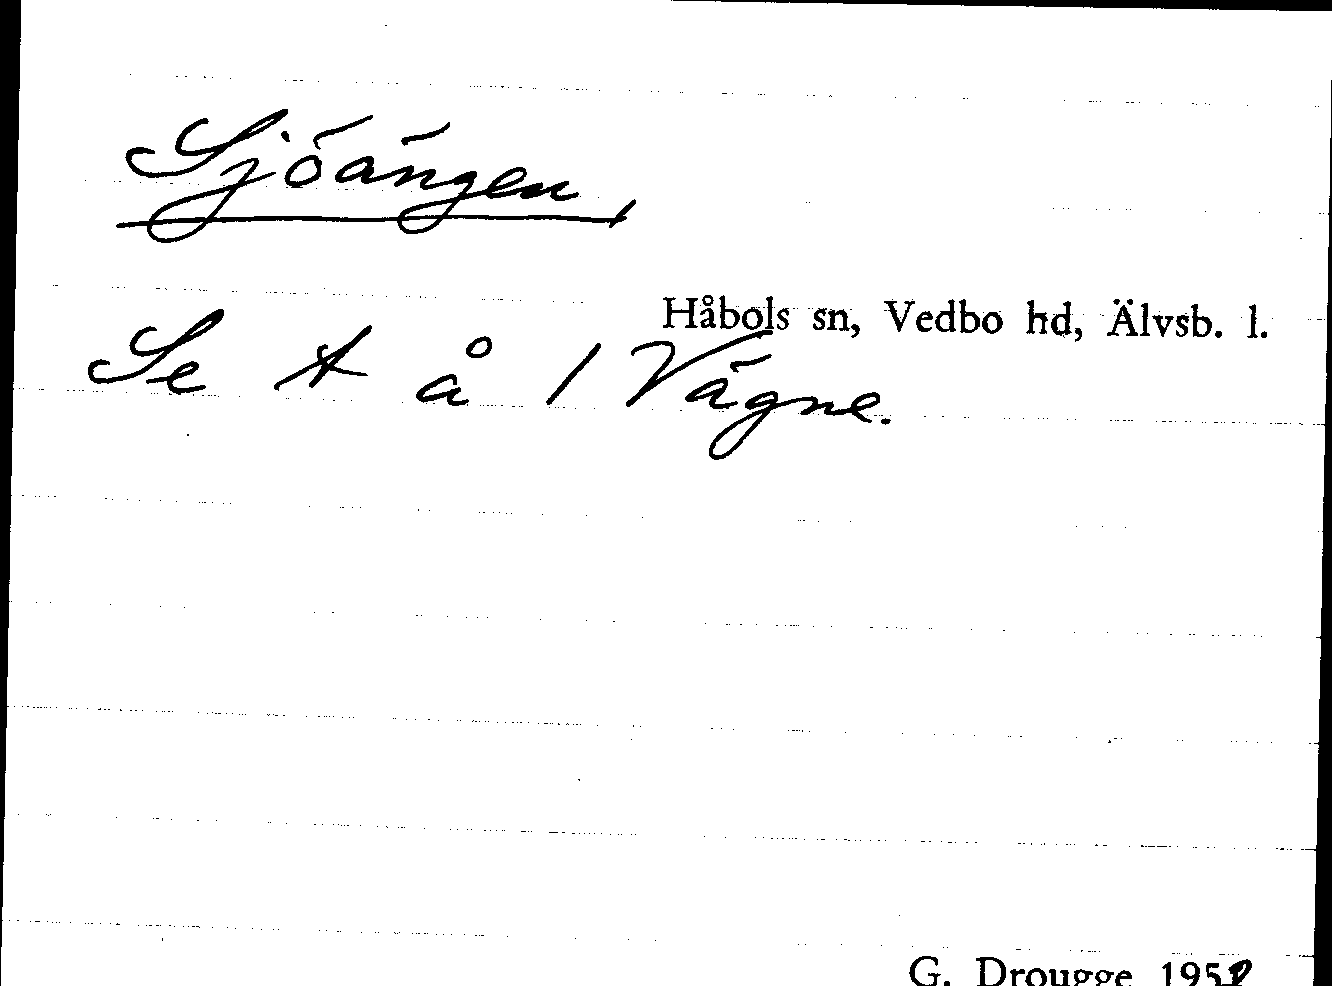 Sjöängen,
Håbols sn, Vedbo hd, Älvsb. l.
Se t å 1 Vägne.
G. Drougge